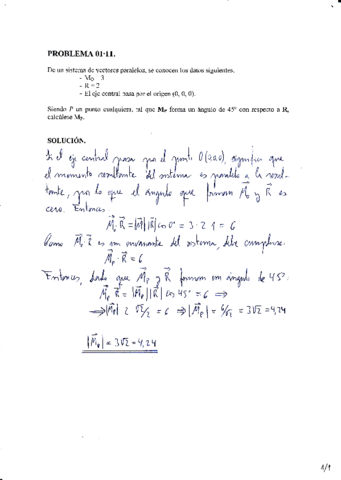 PROBLEMA 01-11.
De un sistema de vectores paralelos, se conocen los datos siguientes.
- M₀ = 3
- R = 2
- El eje central pasa por el origen (0, 0, 0).
Siendo P un punto cualquiera, tal que Mₚ forma un ángulo de 45º con respecto a R,
calcúlese Mₚ.
SOLUCIÓN.
Si el eje central pasa por el punto O(0,0,0), significa que
el momento resultante del sistema es paralelo a la resul-
tante, por lo que el ángulo que forman M⃗₀ y R⃗ es
cero. Entonces
M⃗₀·R⃗ = |M⃗||R⃗| cos 0º = 3·2·1 = 6
Como M⃗₀·R⃗ es un invariante del sistema, debe cumplirse:
M⃗ₚ·R⃗ = 6
Entonces, dado que M⃗ₚ y R⃗ forman un ángulo de 45º:
M⃗ₚ·R⃗ = |M⃗ₚ||R⃗| cos 45º = 6 ⟹
⟹|M⃗ₚ| 2 √2/2 = 6 ⟹ |M⃗ₚ| = 6/√2 = 3√2 = 4,24
|M⃗ₚ| = 3√2 = 4,24
1/1